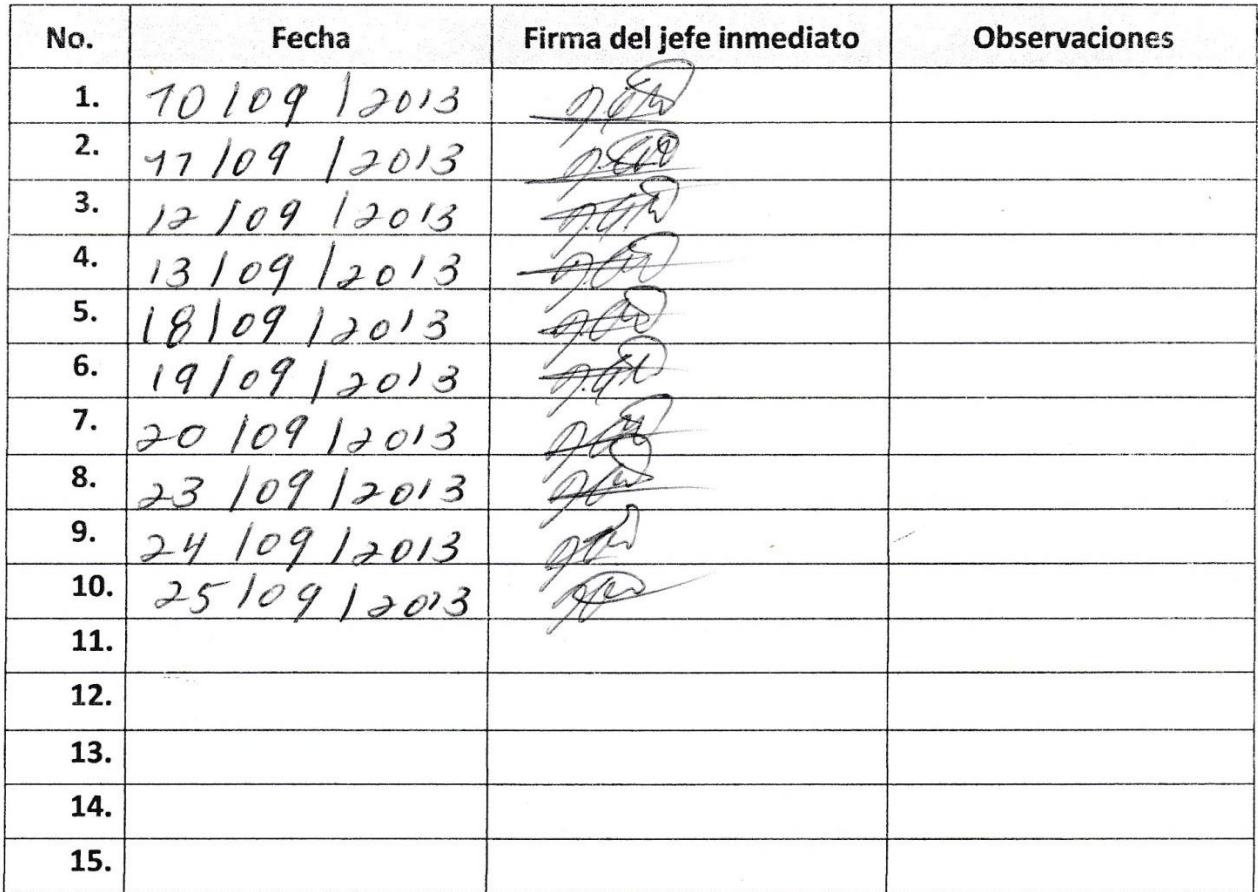 No. Fecha Firma del jefe inmediato Observaciones
1. 10/09/2013
2. 11/09/2013
3. 12/09/2013
4. 13/09/2013
5. 18/09/2013
6. 19/09/2013
7. 20/09/2013
8. 23/09/2013
9. 24/09/2013
10. 25/09/2013
11.
12.
13.
14.
15.